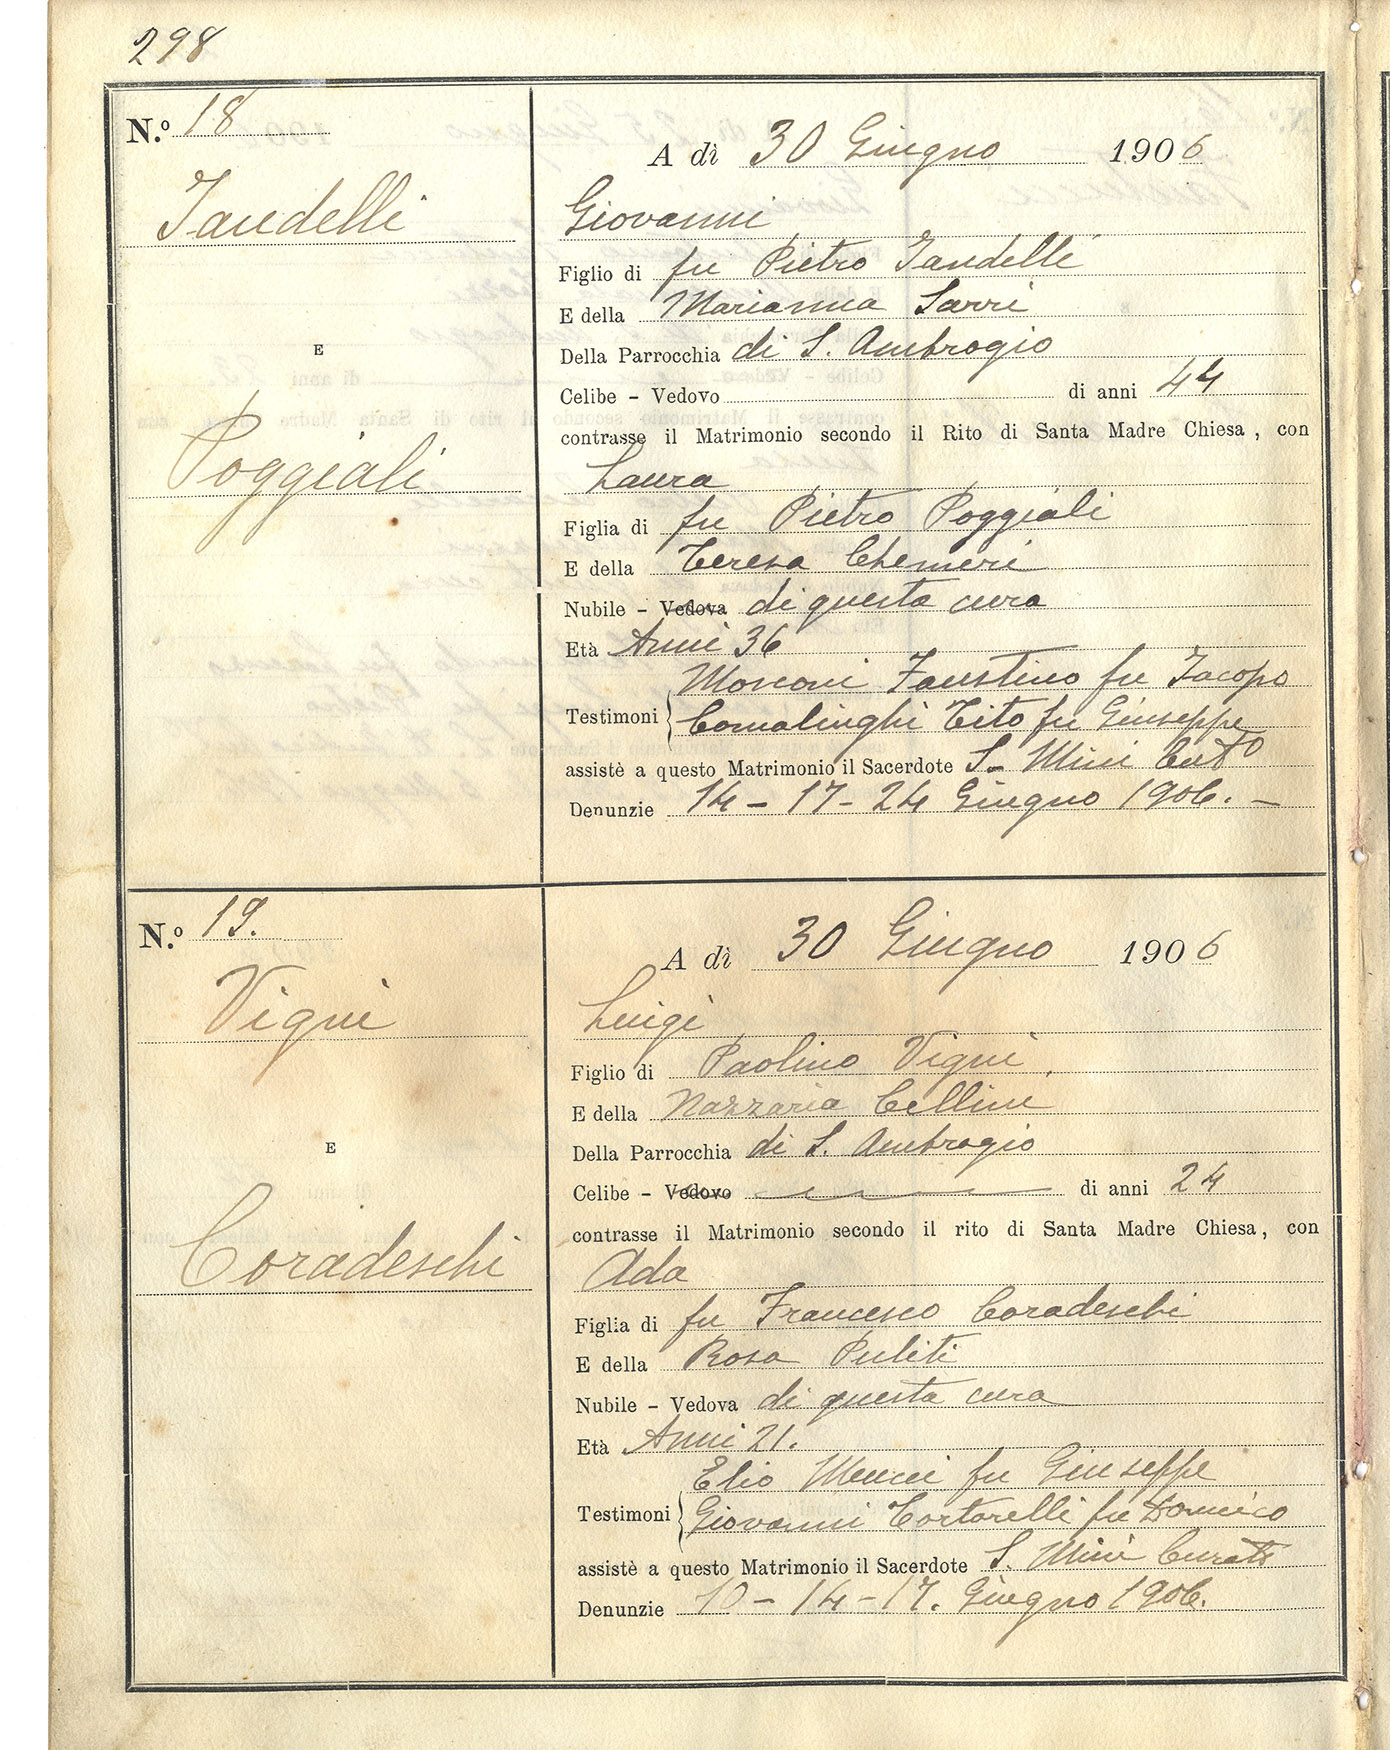 298
N.º 18
Iandelli
E
Poggiali
A dì 30 Giugno 1906
Giovanni
Figlio di fu Pietro Iandelli
E della Marianna Sarri
Della Parrocchia di S. Ambrogio
Celibe - Vedovo di anni 44
contrasse il Matrimonio secondo il Rito di Santa Madre Chiesa, con
Laura
Figlia di fu Pietro Poggiali
E della Teresa Chemeri
Nubile - Vedova di questa cura
Età Anni 36
Morconi Faustino fu Iacopo
Testimoni Comalinghi Tito fu Giuseppe
assistè a questo Matrimonio il Sacerdote S. Mini
Denunzie 14 - 17 - 24 Giugno 1906. -
N.º 19.
Vigni
E
Coradeschi
A dì 30 Giugno 1906
Luigi
Figlio di Paolino Vigni
E della Nazzaria Cellini
Della Parrocchia di S. Ambrogio
Celibe - Vedovo di anni 24
contrasse il Matrimonio secondo il rito di Santa Madre Chiesa, con
Ada
Figlia di fu Francesco Coradeschi
E della Rosa Puliti
Nubile - Vedova di questa cura
Età Anni 21.
Elio Meucci fu Giuseppe
Testimoni Giovanni Tortorelli fu Domenico
assistè a questo Matrimonio il Sacerdote S. Mini Curato
Denunzie 10 - 14 - 17. Giugno 1906.